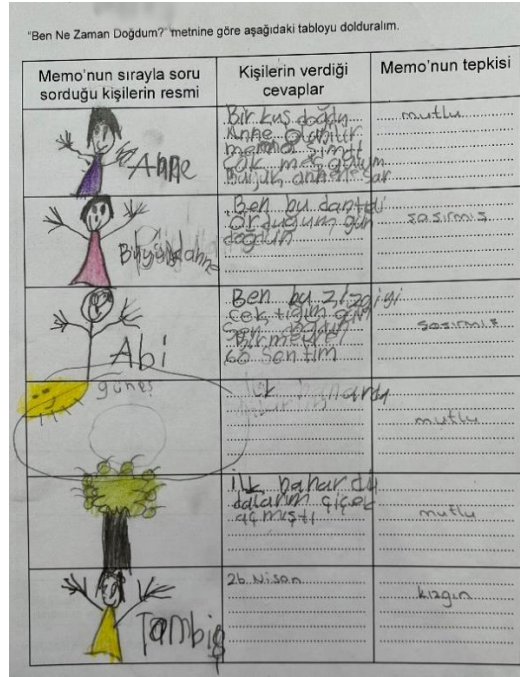 "Ben Ne Zaman Doğdum?" metnine göre aşağıdaki tabloyu dolduralım.
Memo'nun sırayla soru
sorduğu kişilerin resmi
Kişilerin verdiği
cevaplar
Memo'nun tepkisi
Anne
Bir kuş doğdu
Anne
çok meşgulum
mutlu
Ben bu danteli
ördüğüm gün
doğdun
şaşırmış
Abi
Ben bu çizgiyi
sen doğdun
Bir metre
60 Santim
şaşırmış
güneş
ilk
mutlu
ilk bahardı
dalarım çiçek
açmıştı
mutlu
Tombiş
26 Nisan
kızgın